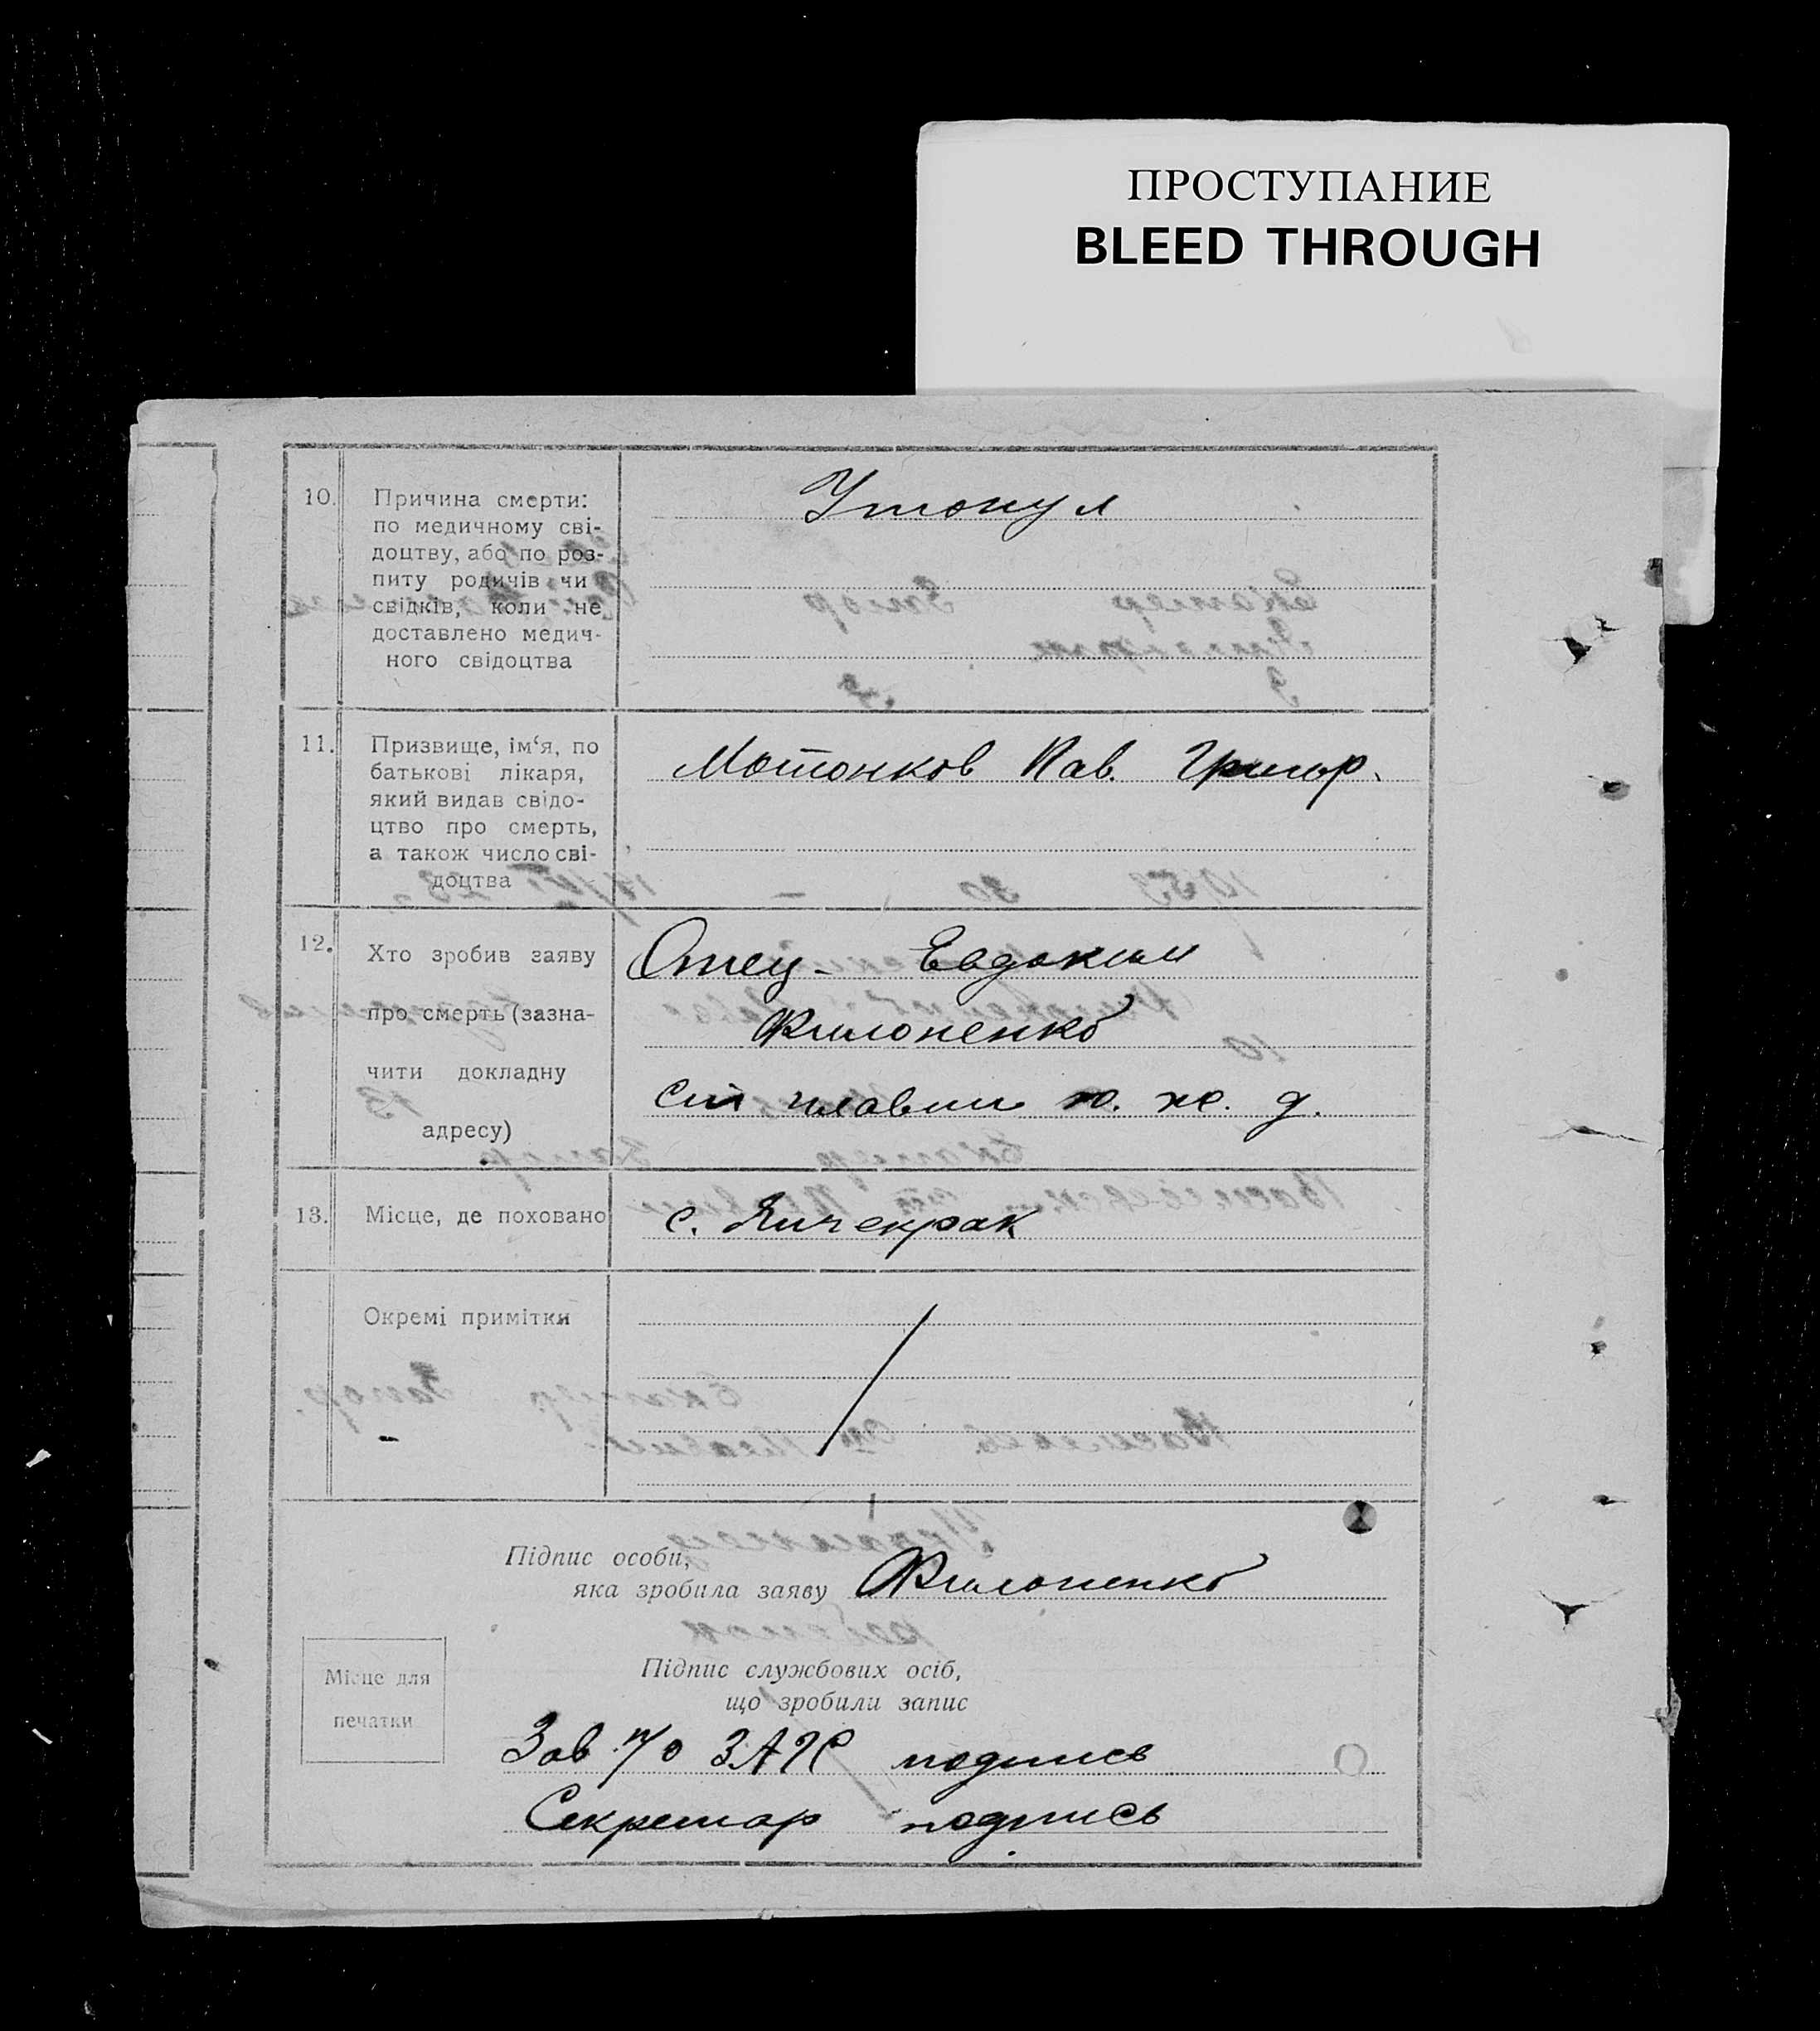 ПРОСТУПАНИЕ
BLEED THROUGH
10. Причина смерти:
по медичному сві-
доцтву, або по роз-
питу родичів чи
свідків, коли не
доставлено медич-
ного свідоцтва
Утонул
11. Призвище, ім‘я, по
батькові лікаря,
який видав свідо-
цтво про смерть,
а також число сві-
доцтва
Мотонков Пав. Григор.
12. Хто зробив заяву
про смерть (зазна-
чити докладну
адресу)
Отец - Евдоким
Филоненко
ст плавни ю. ж. д.
13. Місце, де поховано
с. Янчекрак
Окремі примітки
Підпис особи,
яка зробила заяву Филоненко
Місце для
печатки
Підпис службових осіб,
що зробили запис
Зав п/о ЗАГС подпись
Секретар подпись